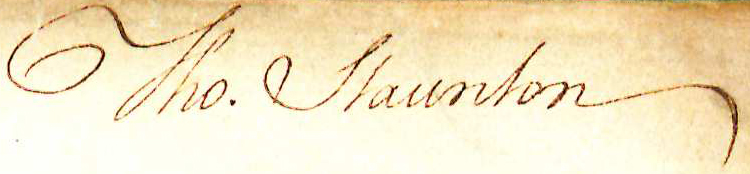 Tho. Staunton